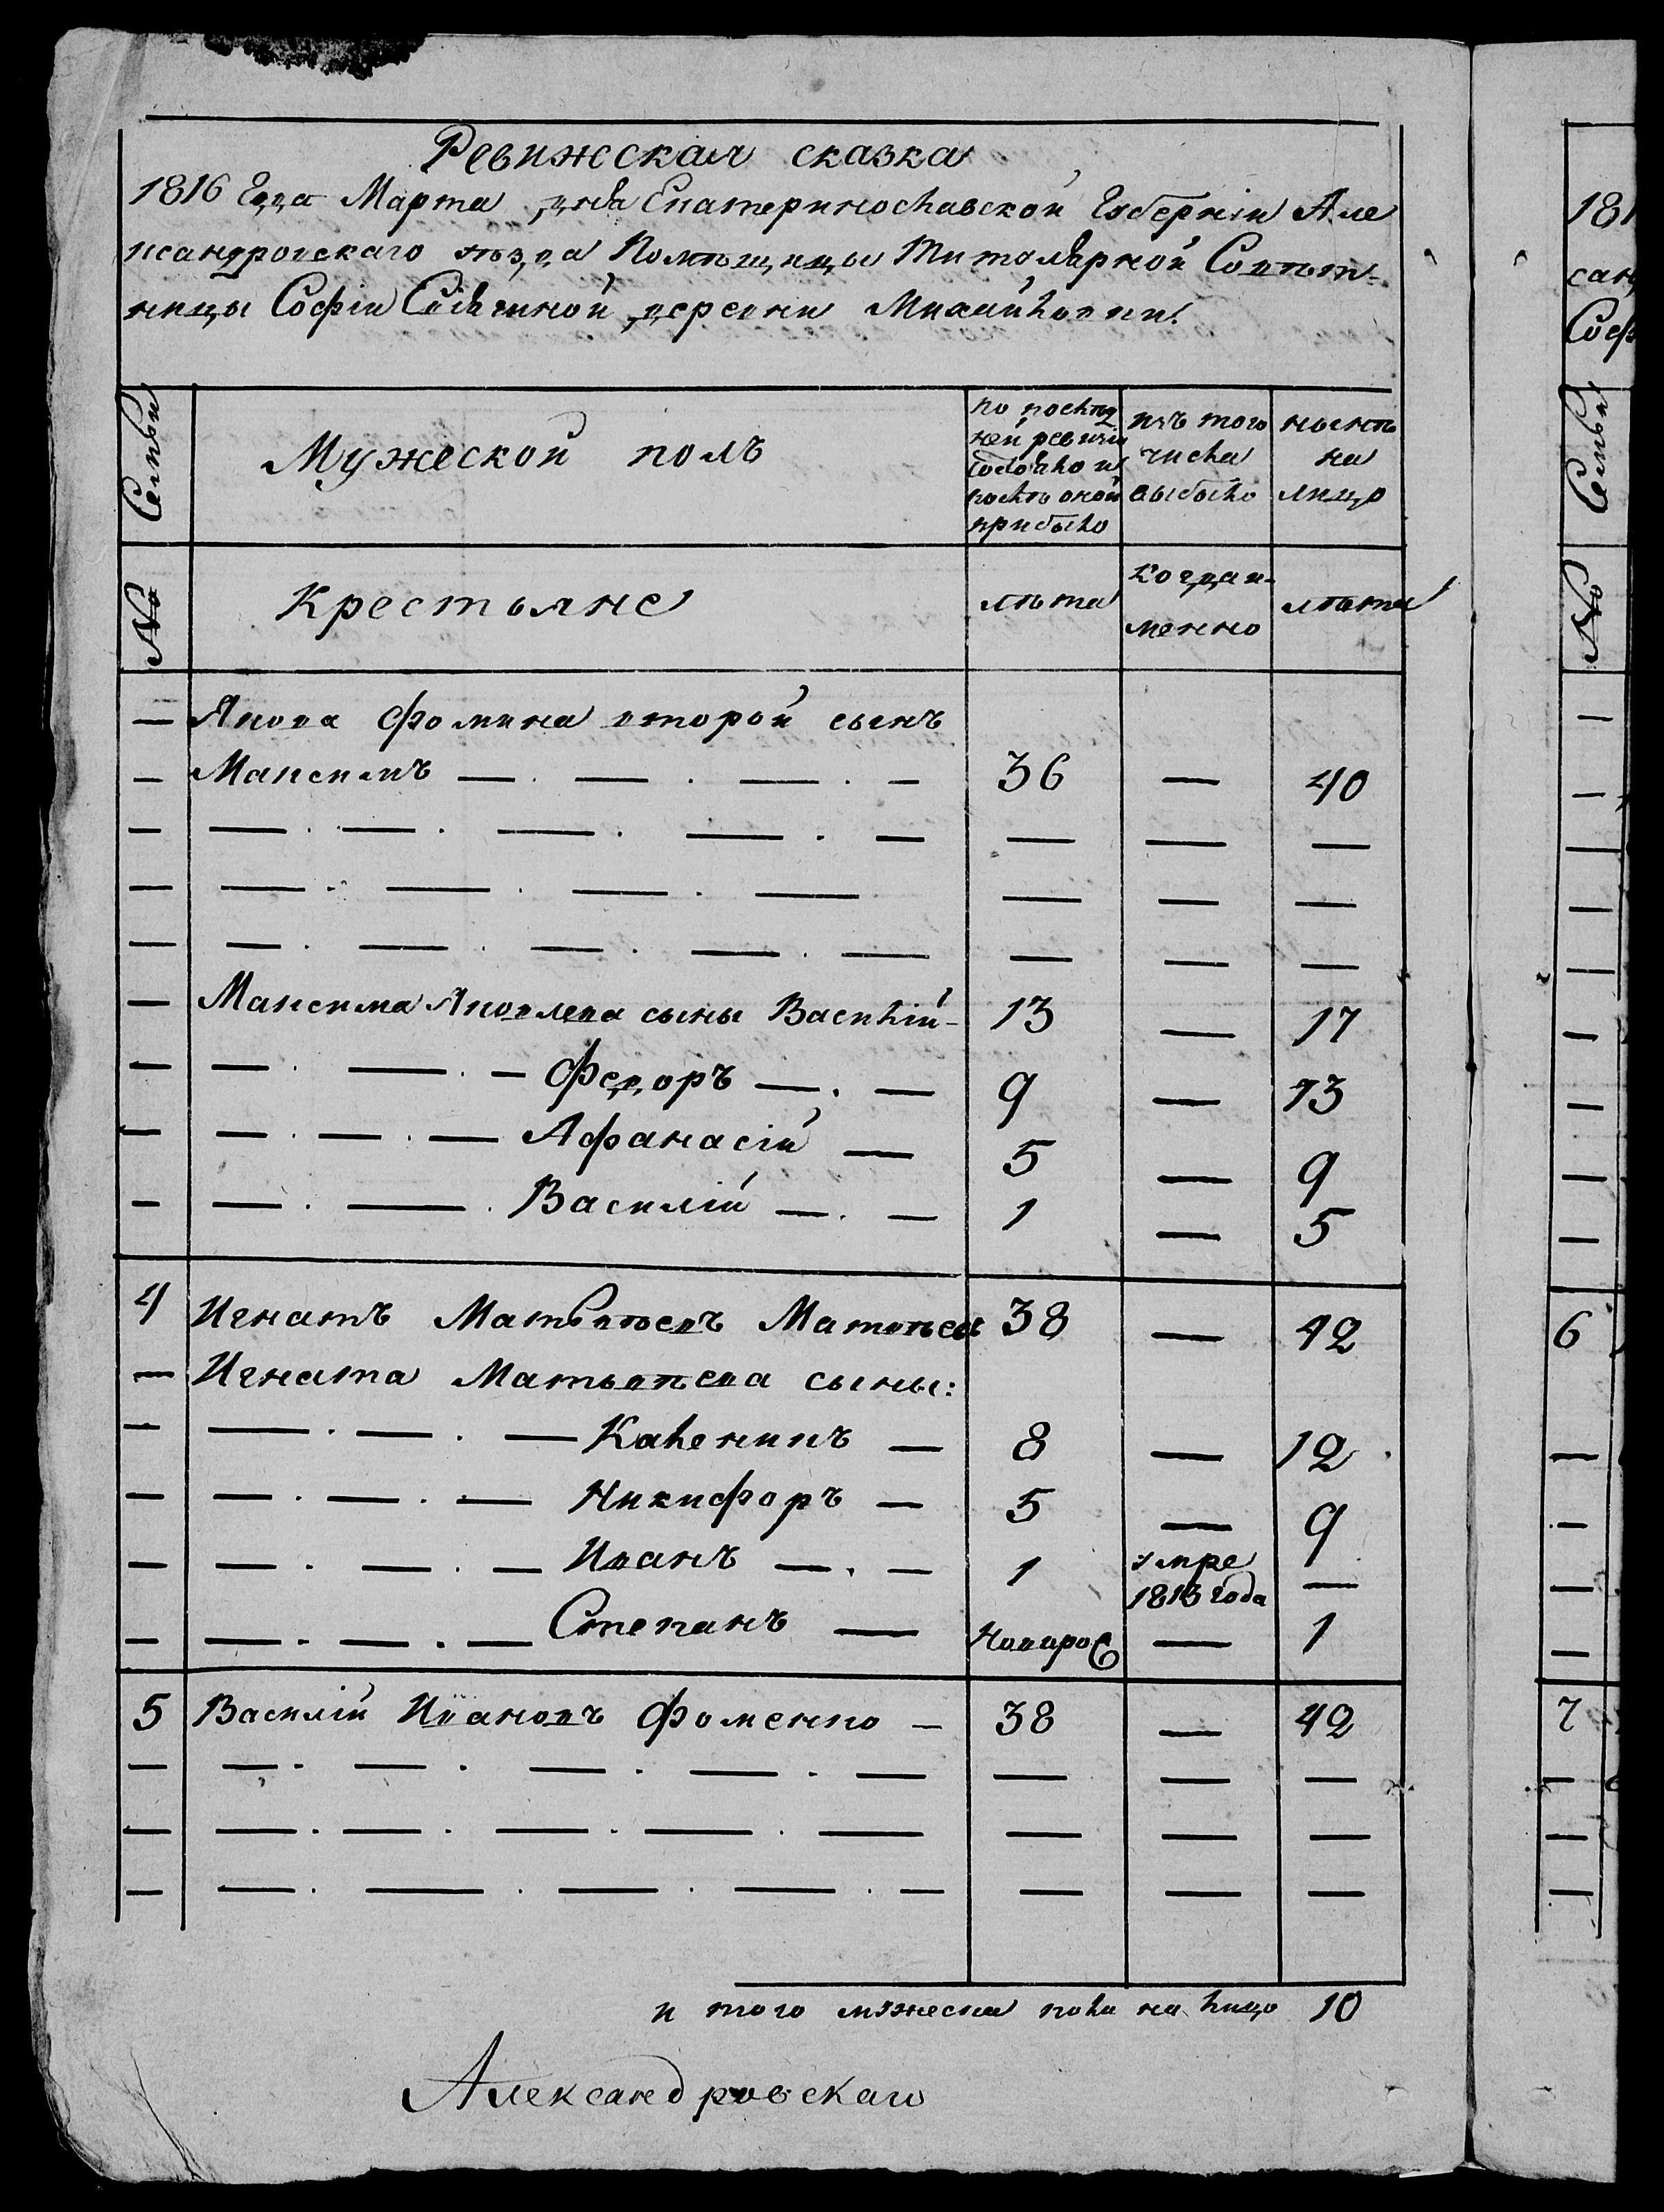 Ревижеская сказка
1816 года Марта дня Екатеринославской Губерніи Але
ксандровскаго уѣзда Помѣщицы Титулярной Совѣт-
ницы Софіи деревни Михайловки.
Семьи
Мужеской полъ
по послѣд
ней ревизіи
состояло и
послѣ оной
прибыло
изъ того
числа
выбыло
нынѣ
на
лицо
№
Крестьяне
лѣта
когда и-
менно
лѣта
— Якова Фомина второй сынъ
— Максимъ — . — . — . — 36 — 40
— — . — . — . — . — — — —
— — . — . — . — — — —
— — . — . — . — . — — — —
— Максима Яковлева сыны Василій — 13 — 17
— — . — . — Федоръ — . — 9 — 13
— — . — . — Афанасій — 5 — 9
— — . — . Василій — . — 1 — 5
4 Игнатъ Матвѣевъ 38 — 42
— Игната Матвѣева сыны:
— — . — . — Каленикъ — 8 — 12
— — . — . — Никифоръ — 5 — 9
— — . — . — Иванъ — . — 1 умре 1813 года —
— — . — . — Степанъ — новорос — 1
5 Василій Ивановъ Фоменко — 38 — 42
— — . — . — . — . — — — —
— — . — . — . — . — — — —
— — . — . — . — . — — — —
и того мужеска пола на лицо 10
Александровскаго
181
сан
Соф
Семьи
№
6
7